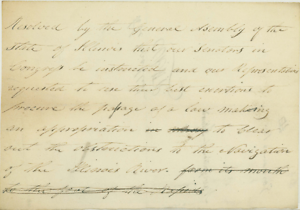 Resolved by the General Assembly of the
State of Illinois that our Senators in
Congress be instructed, and our Representatives
requested to use their best exertions to
procure the passage of a law making
an appropriation in to clear
out the obstructions to the Navigation
of the Illinois River from its mouth
to the foot of the Rapids